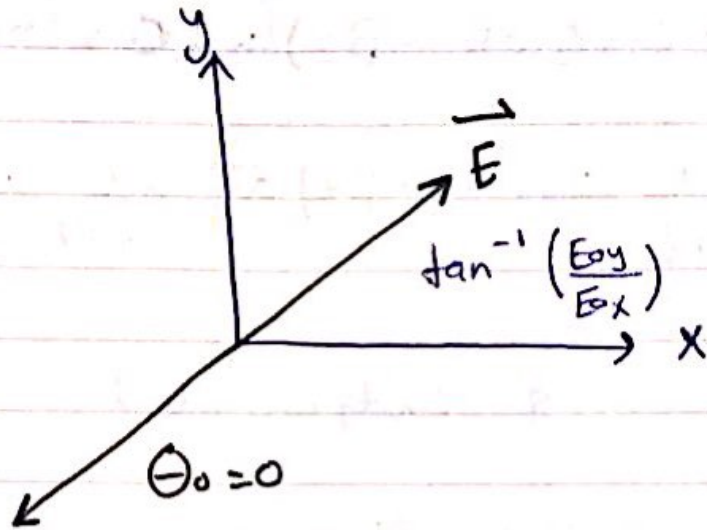 y
E
tan⁻¹ (Eoy/Eox)
x
Θo = 0